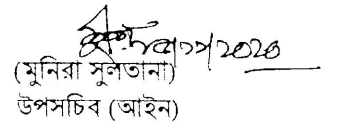 ২০২০
(মুনিরা সুলতানা)
উপসচিব (আইন)